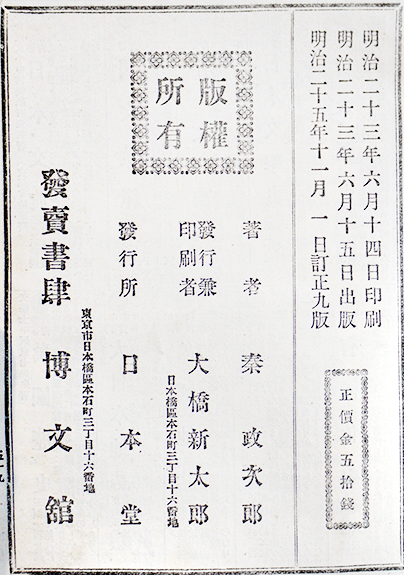 明治二十三年六月十四日印刷
明治二十三年六月十五日出版
明治二十五年十一月一日訂正九版
正價金五拾錢
版權
所有
著者 秦政次郎
發行兼
印刷者 大橋新太郎
日本橋區本石町三丁目十六番地
發行所 日本堂
東京市日本橋區本石町三丁目十六番地
發賣書肆 博文舘